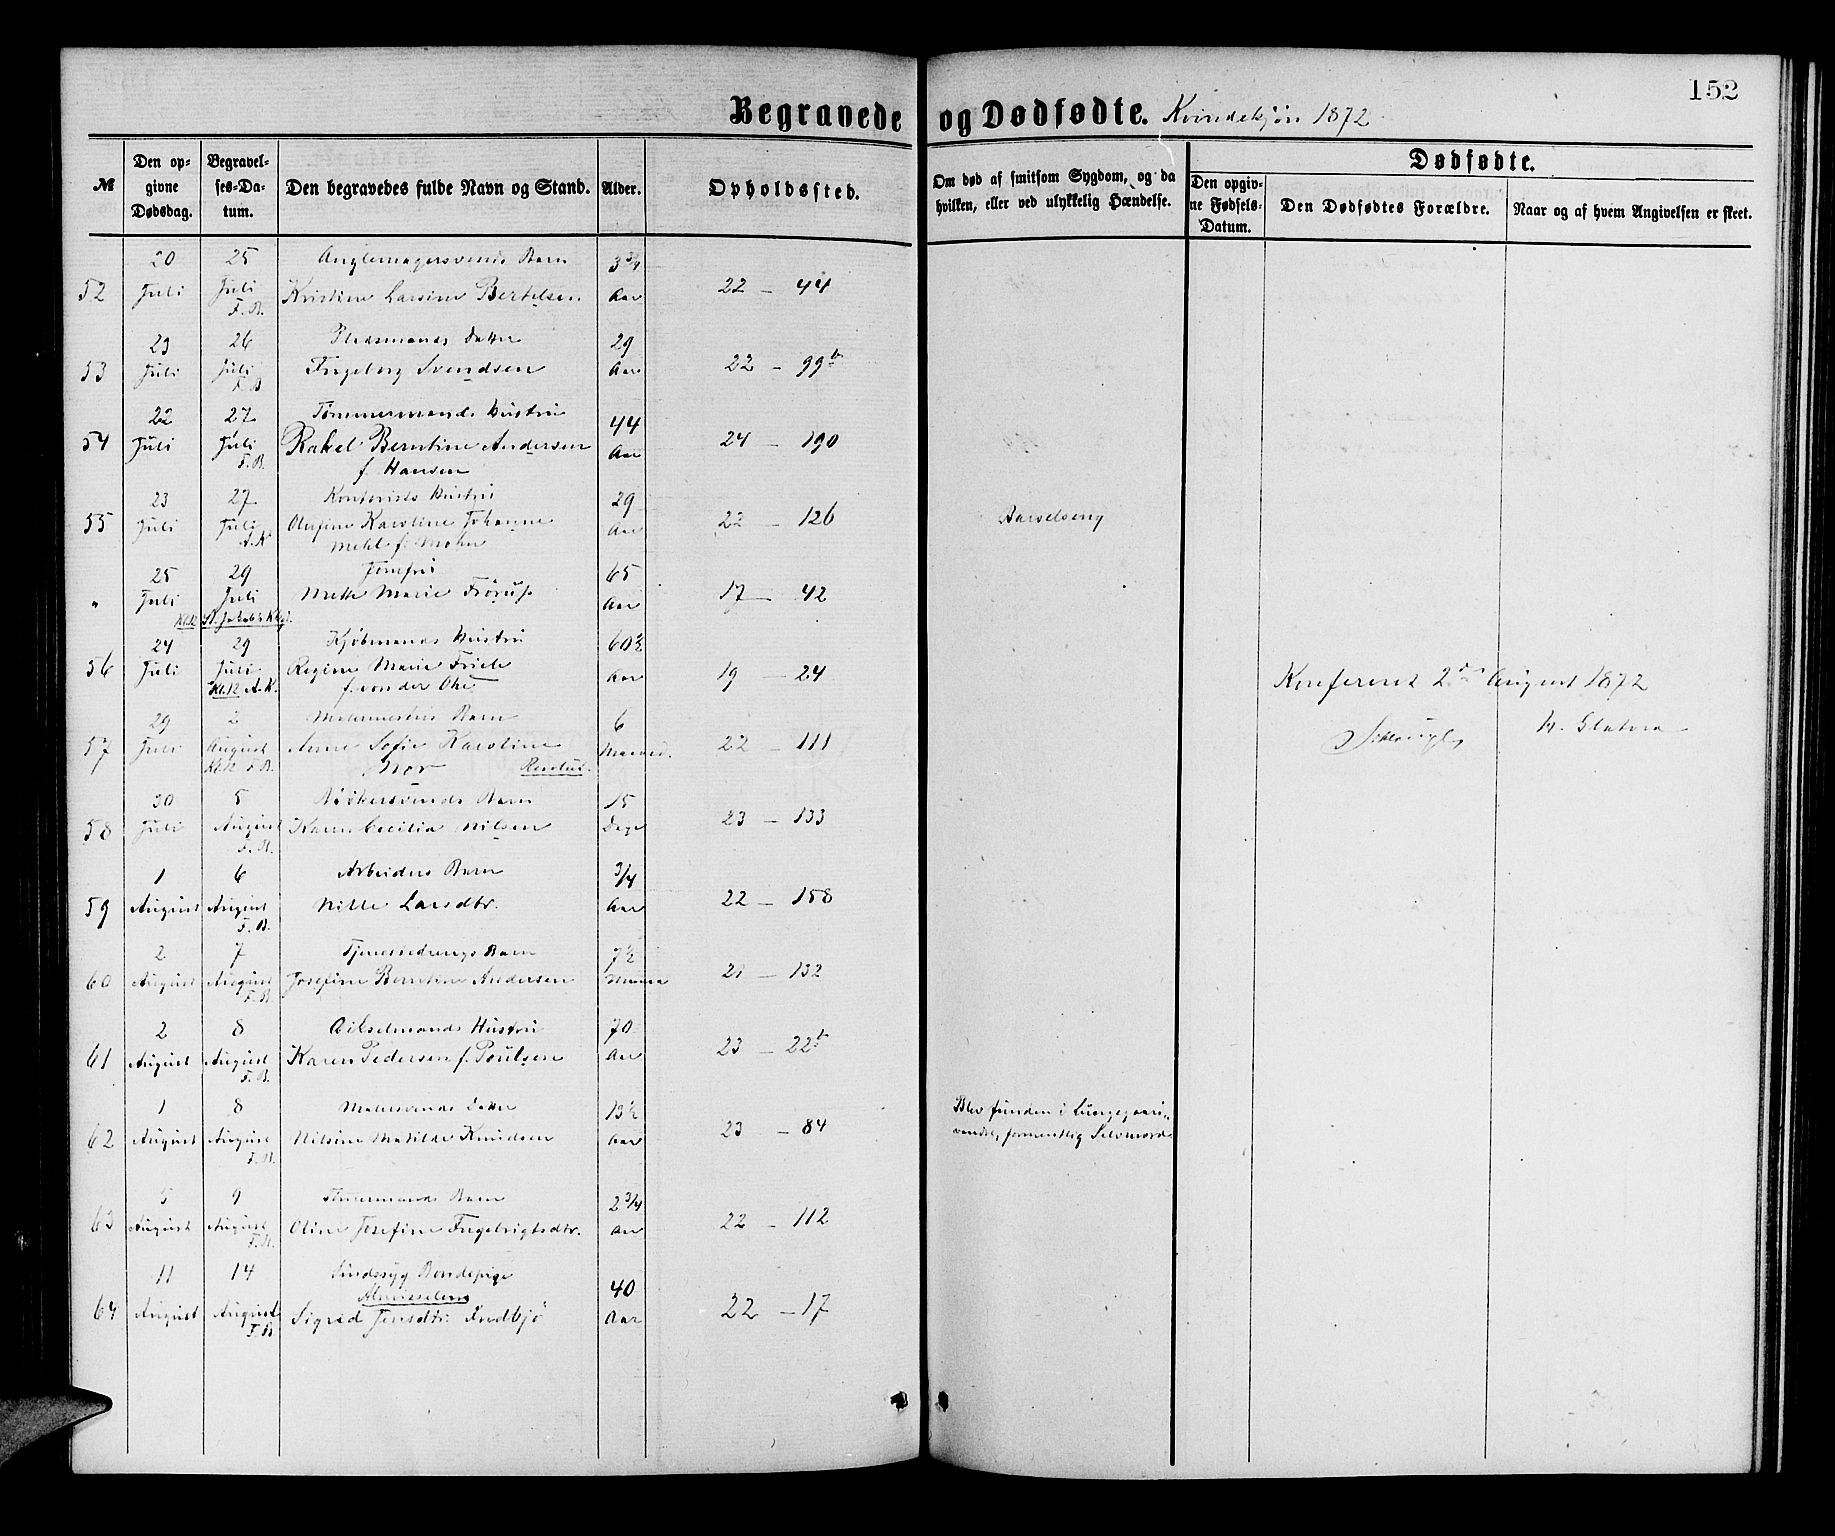 152
Begravede og Dødfødte. Kvindekjøn 1872
№
Den opgivne Dødsdag.
Begravelses-Datum.
Den begravedes fulde Navn og Stand.
Alder.
Opholdssted.
Om død af smitsom Sygdom, og da hvilken, eller ved ulykkelig Hændelse.
Dødfødte.
Den opgivne Fødsels-Datum.
Den Dødfødtes Forældre.
Naar og af hvem Angivelsen er skeet.
20 25 Barn 3 3/4
52 Juli Juli Kristine Larsine Bertelsen Aar 22 – 44
F. B.
23 26 Pladsmands Datter 29
53 Juli Juli Ingeborg Svendsen Aar 22 – 99 b
F. B.
22 27 Tømmermands Hustru 44
54 Juli Juli Rakel Berntine Andersen Aar 24 – 190
F. B. f. Hansen
23 27 Hustru 29
55 Juli Juli Anfine Karoline Johanne Aar 22 – 126 Barselseng
A. K. Mehl f. Mohn
25 29 Jomfru 65
" Juli Juli Mette Marie Frörup Aar 17 – 42
Kl. R. St. Jakobs Kkgd.
24 29 Kjöbmands Hustru 60 1/2
56 Juli Juli Regine Marie Friele Aar 19 – 24
Kl. R. A. K. f. von der Ohe
Konfereret 2den August 1872
29 2 Malermesters Barn 6
57 Juli August Anne Sofie Karoline Maaned. 22 – 111
Kl. R. F. B. Mor
30 5 Bödkersvends Barn 15
58 Juli August Karen Cecilia Nilsen Dage 23 – 133
F. B.
1 6 Arbeiders Barn 3/4
59 August August Nille Larsdtr. Aar 22 – 158
F. B.
2 7 Tjenestedrengs Barn 7 1/2
60 August August Josefine Berntine Andersen 21 – 132
F. B.
2 8 Hustru 70
61 August August Karen Pedersen f. Poulsen Aar 23 – 22 b
F. B.
1 8 Malersvends Datter 13 1/2 Blev funden i Lungegaards-
62 August August Nilsine Matilde Knudsen Aar 23 – 84 vandet, formentlig Selvmord
F. B.
5 9 Tömmermands Barn 2 3/4
63 August August Oline Josefine Ingebrigtsdtr. Aar 22 – 112
F. B.
11 14 Sindssyg Bondepige 40
Almisselem
64 August August Sigrid Jensdtr. Aar 22 – 17
F. B.